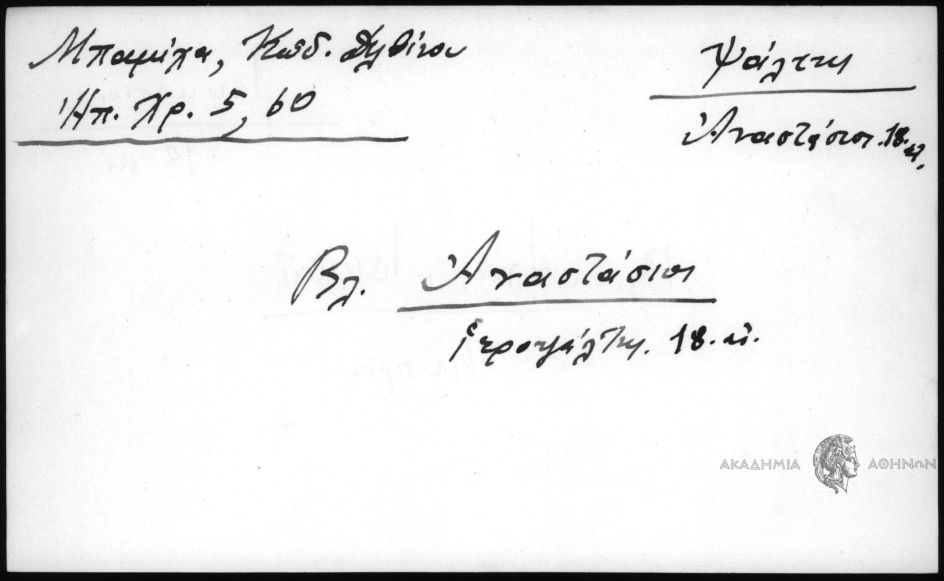 Μπαμίχα, Κώδ. Δελβίνου
Ἠπ. Χρ. 5, 60
Ψάλτης
Ἀναστάσιος 18. αἰ.
Βλ. Ἀναστάσιος
ἱεροψάλτης. 18. αἰ.
ΑΚΑΔΗΜΙΑ ΑΘΗΝΩΝ